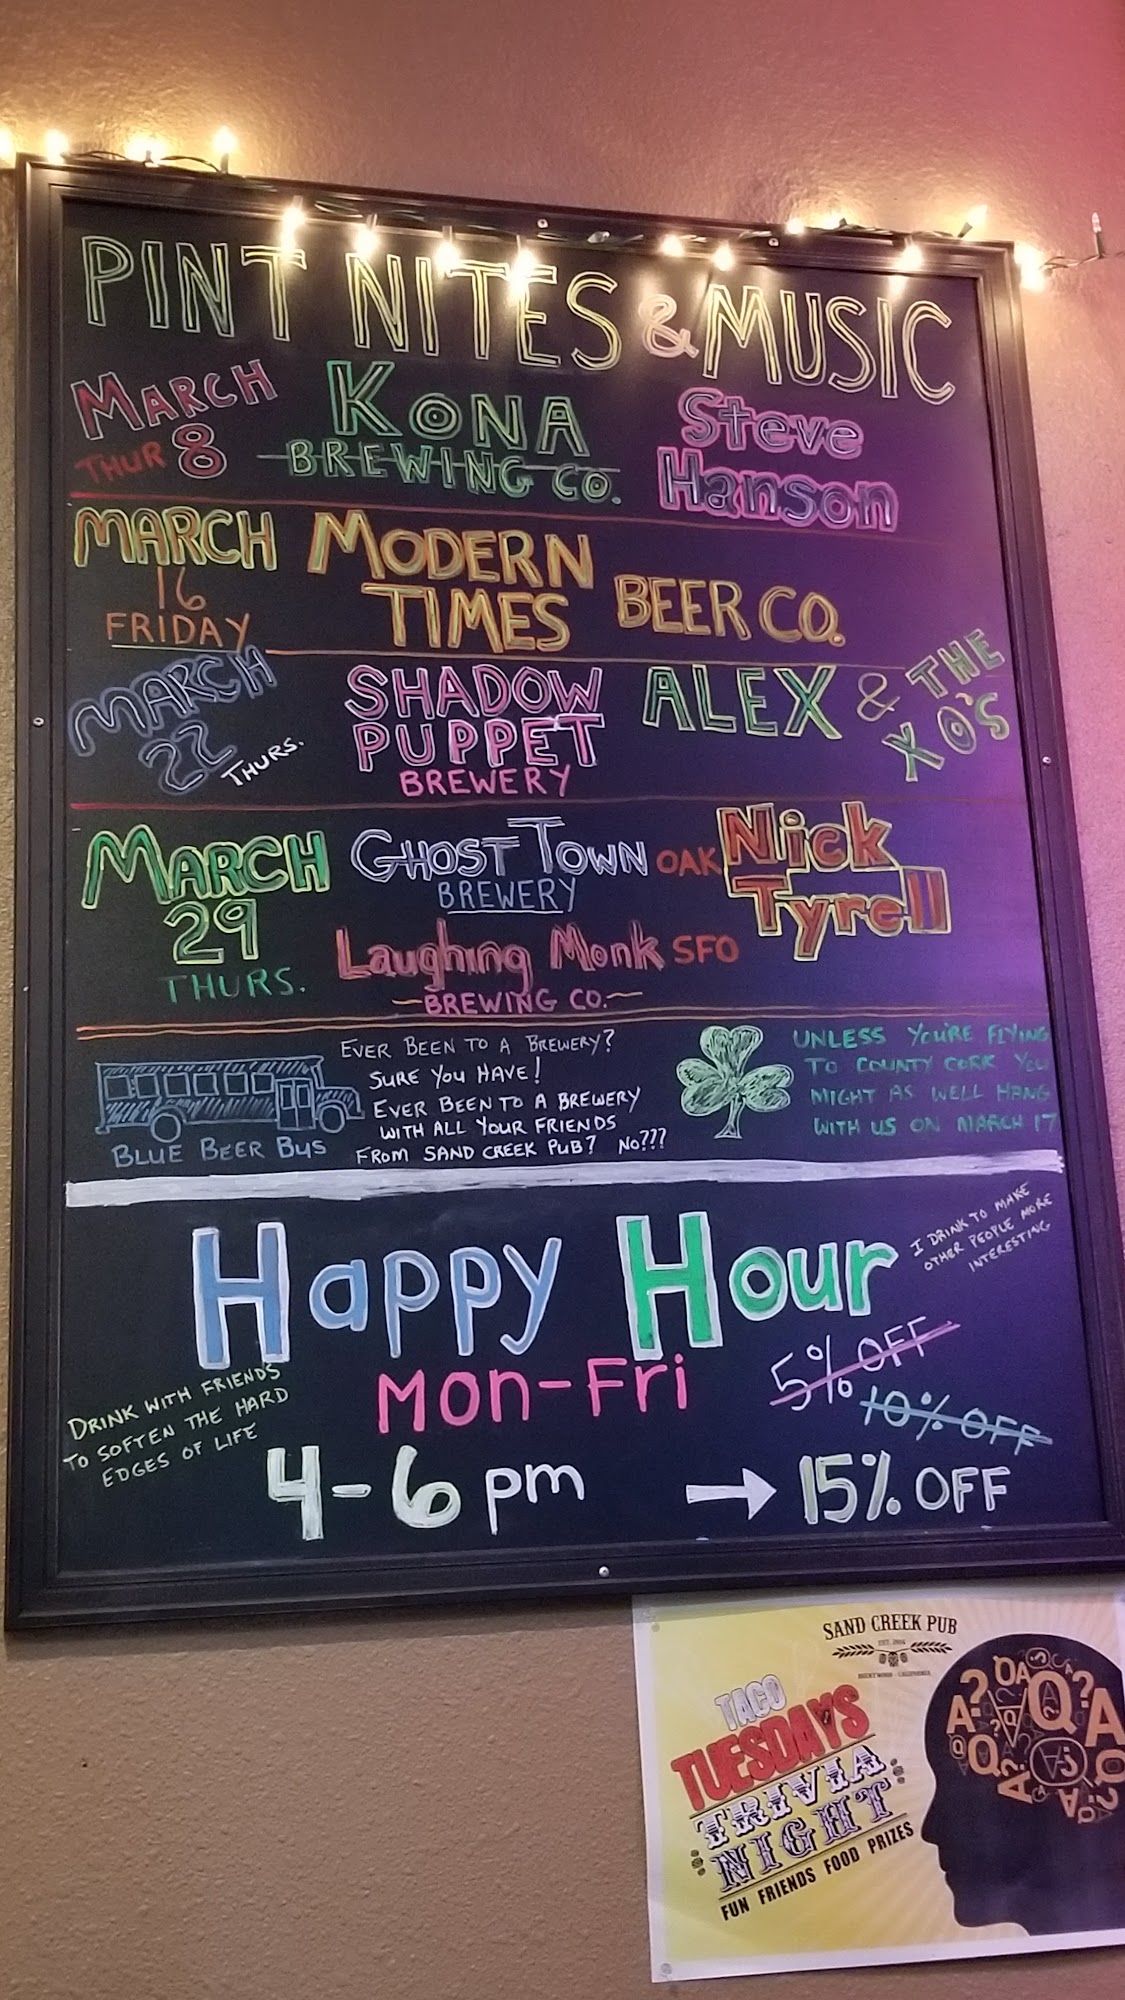 PINT NITES & MUSIC
MARCH
THUR 8
KONA
BREWING CO.
Steve
Hanson
MARCH
16
FRIDAY
MODERN
TIMES
BEER CO.
MARCH
22
THURS.
SHADOW
PUPPET
BREWERY
ALEX & THE
XO'S
MARCH
29
THURS.
GHOST TOWN OAK
BREWERY
Laughing Monk SFO
BREWING CO.
Nick
Tyrell
BLUE BEER BUS
EVER BEEN TO A BREWERY?
SURE YOU HAVE!
EVER BEEN TO A BREWERY
WITH ALL YOUR FRIENDS
FROM SAND CREEK PUB? NO???
UNLESS YOU'RE FLYING
TO COUNTY CORK YOU
MIGHT AS WELL HANG
WITH US ON MARCH 17
Happy Hour
I DRINK TO MAKE
OTHER PEOPLE MORE
INTERESTING
Mon-Fri
5% OFF
10% OFF
DRINK WITH FRIENDS
TO SOFTEN THE HARD
EDGES OF LIFE
4-6 pm
→ 15% OFF
SAND CREEK PUB
EST. 2016
BRENTWOOD - CALIFORNIA
TACO
TUESDAYS
TRIVIA
NIGHT
FUN FRIENDS FOOD PRIZES